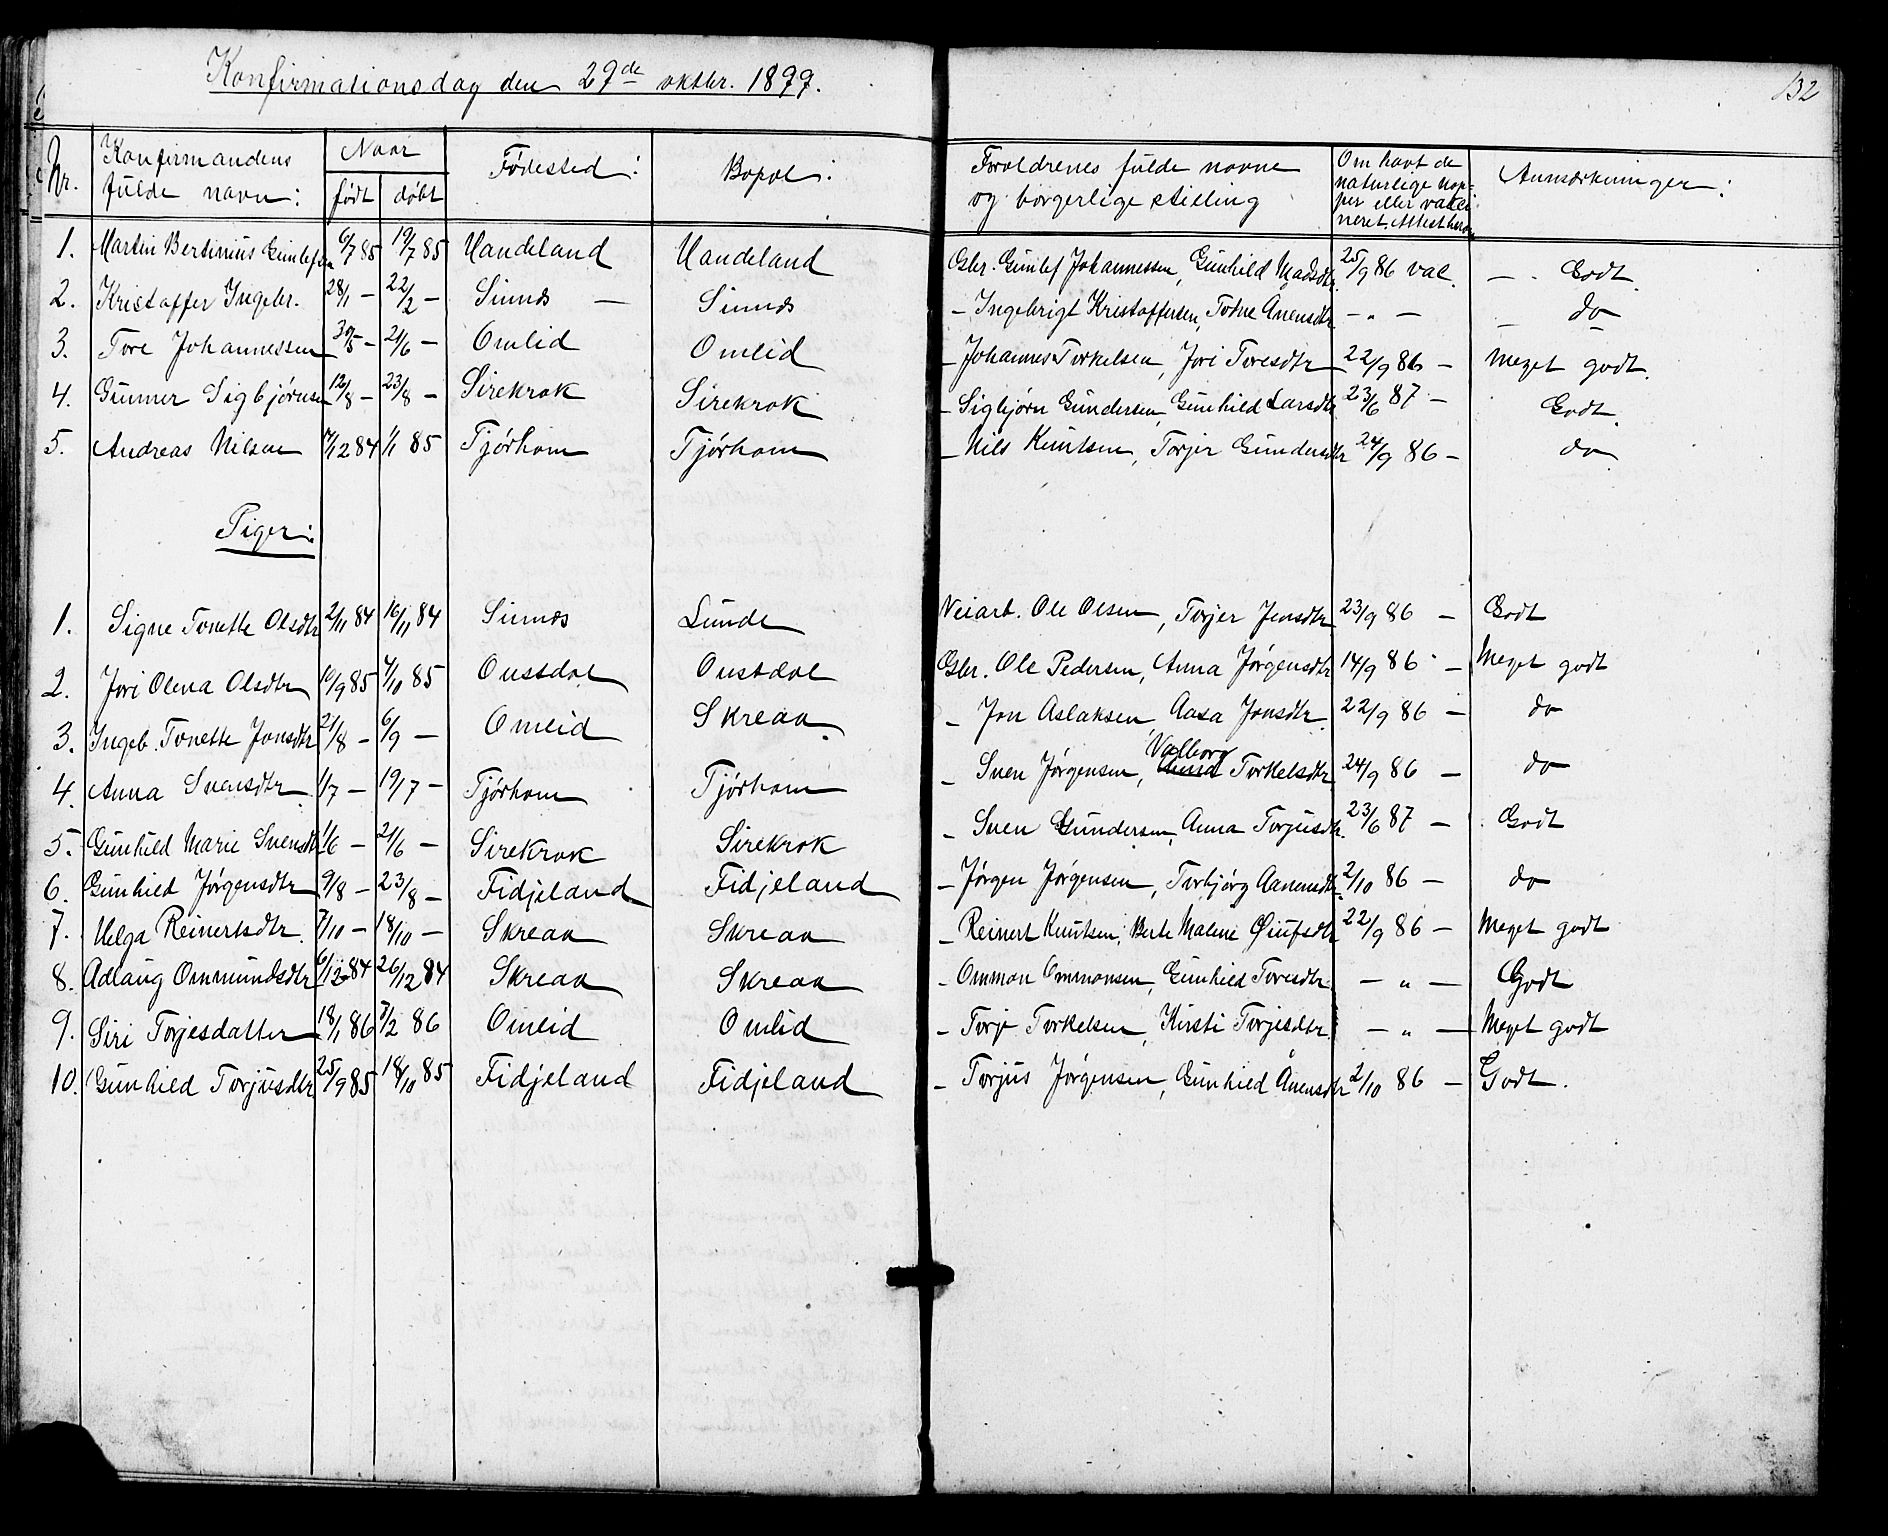 Konfirmationsdag den 29de oktbr. 1899.
132
Nr. Konfirmandens fulde navn: Naar født døbt Fødested: Bopæl: Forældrenes fulde navne og borgerlige stilling Om havt de naturlige kopper eller vakcineret. Anmærkninger:
1. Martin Bertinius Gunlefsen 6/7 85 19/7 85 Haudeland Haudeland Gbr. Gunlef Johannessen, Gunhild Madsdtr. 25/9 86 vac. — . Godt.
2. Kristoffer Ingebr. 28/1 — 22/2 — Sinnes — Sinnes — Ingebrigt Kristoffersen, Todne Ånensdtr — " — — do
3. Tore Johannessen 30/5 — 21/6 — Omlid Omlid — Johannes Torkelsen, Jori Toresdtr 22/9 86 — Meget godt.
4. Gunner Sigbjørnsen 12/8 — 23/8 — Sirekrok Sirekrok — Sigbjørn Gundersen, Gunhild Larsdtr 23/6 87 — Godt.
5. Andreas Nilsen 7/12 84 1/1 85 Tjørhom Tjørhom — Nils Knutsen, Torjer Gundersdtr 24/9 86 — do
Piger:
1. Signe Tonette Olsdtr 2/11 84 16/11 84 Sinnes Lunde Veiarb. Ole Olsen, Torjer Jensdtr 23/9 86 — Godt
2. Jori Olena Olsdtr 10/9 85 4/10 85 Ousdal Ousdal Gbr. Ole Pedersen, Anna Jørgensdtr 14/9 86 — Meget godt
3. Ingeb. Tonette Jonsdtr 21/8 — 6/9 — Omlid Skreaa — Jon Aslaksen, Aasa Jonsdtr 22/9 86 — do
4. Anna Svensdtr. 1/7 — 19/7 — Tjørhom Tjørhom — Sven Jørgensen, Valborg Torkelsdtr 24/9 86 — do
5. Gunhild Marie Svensdtr 1/6 — 21/6 — Sirekrok Sirekrok — Sven Gundersen, Anna Torjusdtr. 23/6 87 — Godt
6. Gunhild Jørgensdtr 9/8 — 23/8 — Fidjeland Fidjeland — Jørgen Jørgensen, Torbjørg Aanensdtr. 2/10 86 — do
7. Helga Reinertsdtr. 7/10 — 18/10 — Skreaa Skreaa — Reinert Knutsen, Berte Malene 22/9 86 — Meget godt
8. Adlaug Ommundsdtr 6/12 84 26/12 84 Skreaa Skreaa — Ommon Ommonsen, Gunhild Toresdtr. — " — Godt
9. Siri Torjesdatter 18/1 86 7/2 86 Omlid Omlid — Torje Torkelsen, Kirsti Torjesdtr. — " — Meget godt
10. Gunhild Torjusdtr 25/9 85 18/10 85 Fidjeland Fidjeland — Torjus Jørgensen, Gunhild Ånensdtr 2/10 86 — Godt.